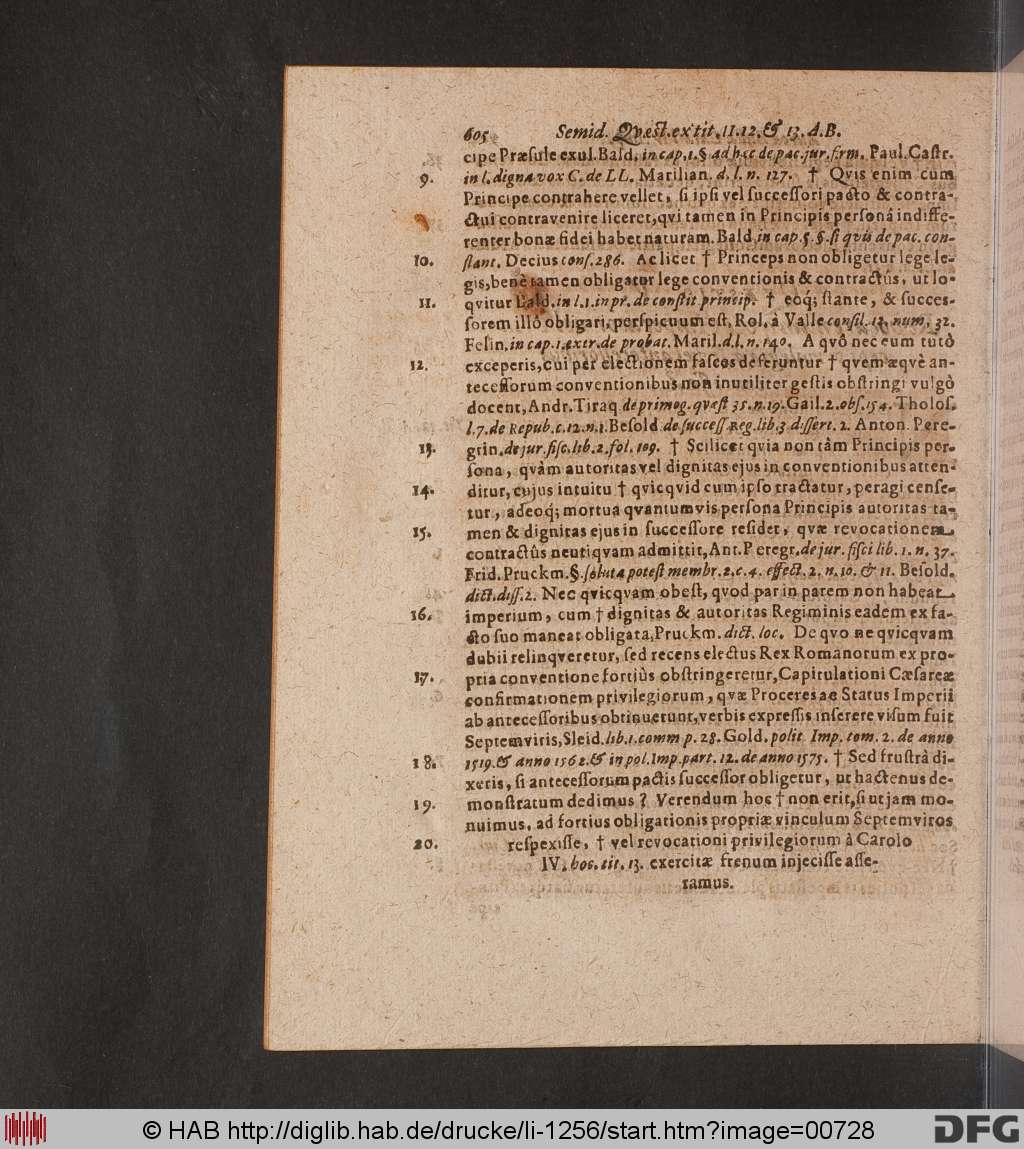 605 Semid. Qvæst. ex tit. 11. 12. & 13. A. B.
cipe Præsule exul. Bald. in cap. 1. § ad hæc de pac. jur. firm. Paul. Castr.
9. in l. digna vox C. de LL. Marilian. d. l. n. 127. † Qvis enim cum
Principe contrahere vellet, si ipsi vel successori pacto & contra-
ctui contravenire liceret, qvi tamen in Principis personâ indiffe-
renter bonæ fidei habet naturam. Bald. in cap. 5. §. si qvis de pac. con-
10. stant. Decius cons. 286. Ac licet † Princeps non obligetur lege le-
gis, benè tamen obligatur lege conventionis & contractûs, ut lo-
11. qvitur Bald. in l. 1. in pr. de constit princip. † eoq; stante, & succes-
sorem illô obligari, perspicuum est, Rol. à Valle consil. 12. num. 32.
Felin. in cap. 1. extr. de probat. Maril. d. l. n. 140. A qvô nec eum tutò
12. exceperis, cui per electionem fasces deferuntur † qvem æqvè an-
tecessorum conventionibus non inutiliter gestis obstringi vulgò
docent, Andr. Tiraq de primog. qvæst 35. n. 19. Gail. 2. obs. 154. Tholos.
l. 7. de Repub. c. 12. n. 1. Besold de success. Reg. lib. 3 dissert. 2. Anton. Pere-
13. grin. de jur. fisc. lib. 2. fol. 109. † Scilicet qvia non tàm Principis per-
sona, qvàm autoritas vel dignitas ejus in conventionibus atten-
14. ditur, cujus intuitu † qvicqvid cum ipso tractatur, peragi cense-
tur, adeoq; mortua qvantumvis persona Principis autoritas ta-
15. men & dignitas ejus in successore residet, qvæ revocationem
contractûs neutiqvam admittit, Ant. Peregr. de jur. fisci lib. 1. n. 37.
Frid. Pruckm. §. soluta potest membr. 2. c. 4. effect. 2. n. 10. & 11. Besold.
dict. diss. 2. Nec qvicqvam obest, qvod par in parem non habeat
16. imperium, cum † dignitas & autoritas Regiminis eadem ex fa-
cto suo maneat obligata, Pruckm. dict. loc. De qvo ne qvicqvam
dubii relinqveretur, sed recens electus Rex Romanorum ex pro-
17. pria conventione fortiùs obstringeretur, Capitulationi Cæsareæ
confirmationem privilegiorum, qvæ Proceres ac Status Imperii
ab antecessoribus obtinuerunt, verbis expressis inserere visum fuit
Septemviris, Sleid. lib. 1. comm p. 28. Gold. polit Imp. tom. 2. de anno
18. 1519. & anno 1562. & in pol. Imp. part. 12. de anno 1575. † Sed frustrà di-
xeris, si antecessorum pactis successor obligetur, ut hactenus de-
19. monstratum dedimus? Verendum hoc † non erit, si ut jam mo-
nuimus, ad fortius obligationis propriæ vinculum Septemviros
20. respexisse, † vel revocationi privilegiorum à Carolo
IV. hoc. tit. 13. exercitæ frenum injecisse asse-
ramus.
© HAB http://diglib.hab.de/drucke/li-1256/start.htm?image=00728
DFG